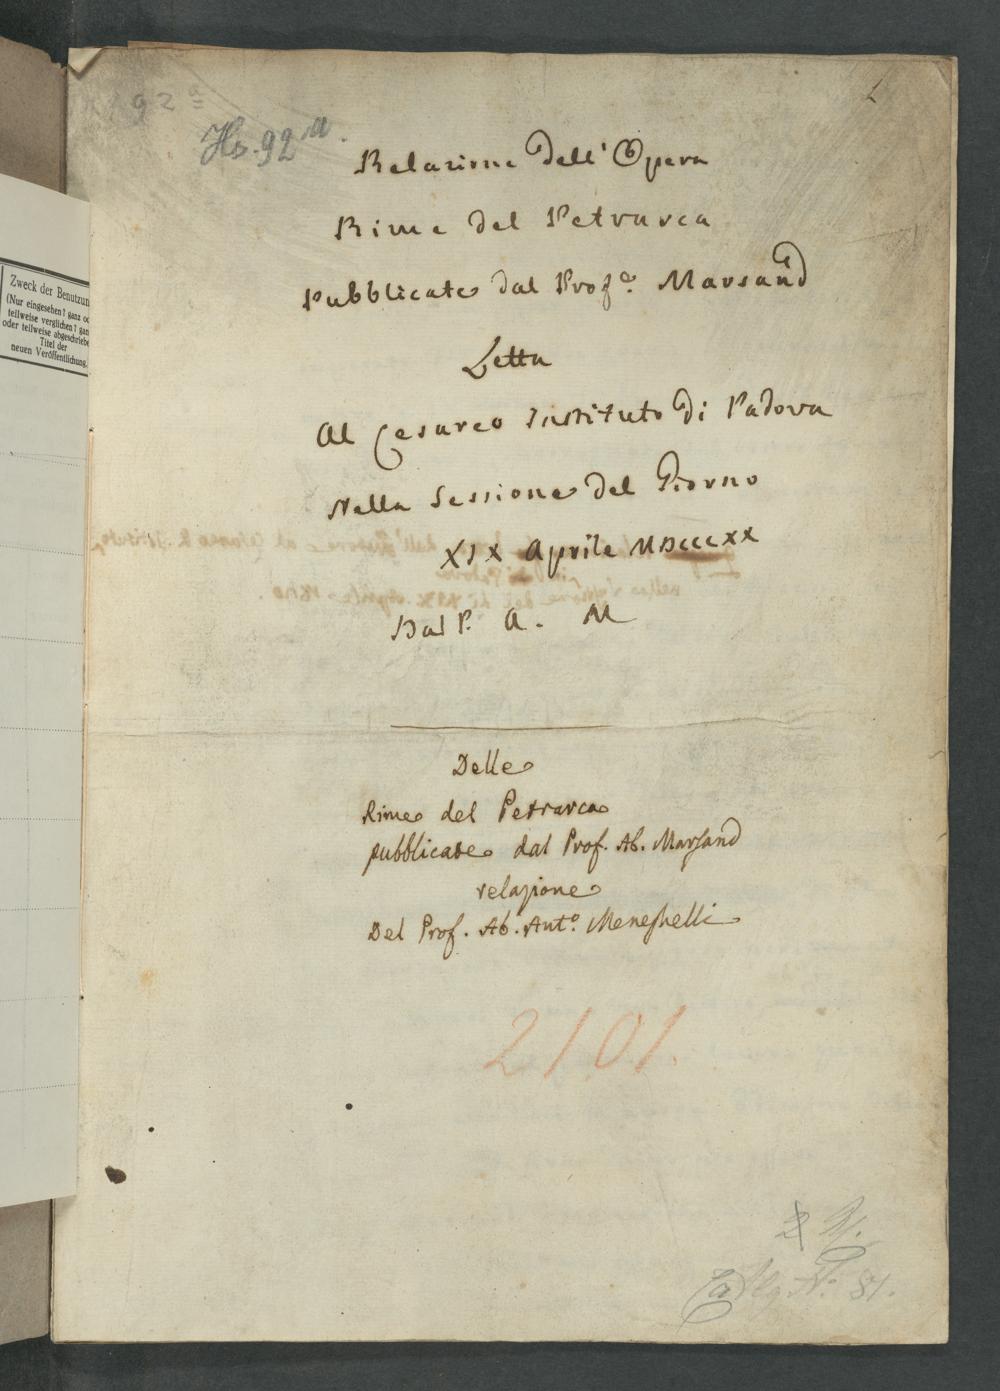 92 a
Hs. 92 a.
Relazione dell' Opera
Rime del Petrarca
Pubblicate dal Profe. Marsand
Letta
Al Cesareo Instituto di Padova
Nella Sessione del Giorno
XIX Aprile MDCCCXX
Dal P. A. M
Delle
Rime del Petrarca
pubblicate dal Prof. Ab. Marsand
relazione
Del Prof. Ab. Anto. Meneghelli
2101.
No. 81.
Zweck der Benutzun
(Nur eingesehen? ganz od
teilweise verglichen? gan
oder teilweise abgeschriebe
Titel der
neuen Veröffentlichung.